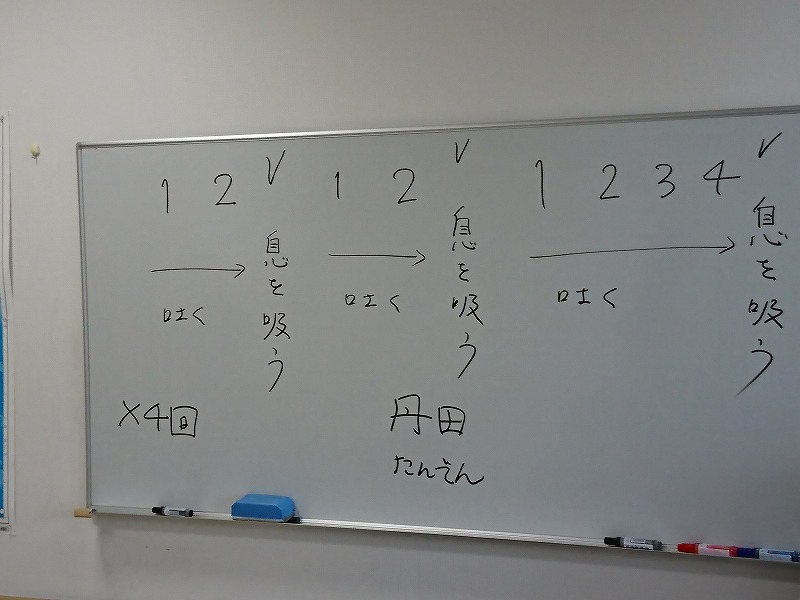 1 2 V 1 2 V 1 2 3 4 V
吐く
息を吸う
吐く
息を吸う
吐く
息を吸う
×4回
丹田
たんでん